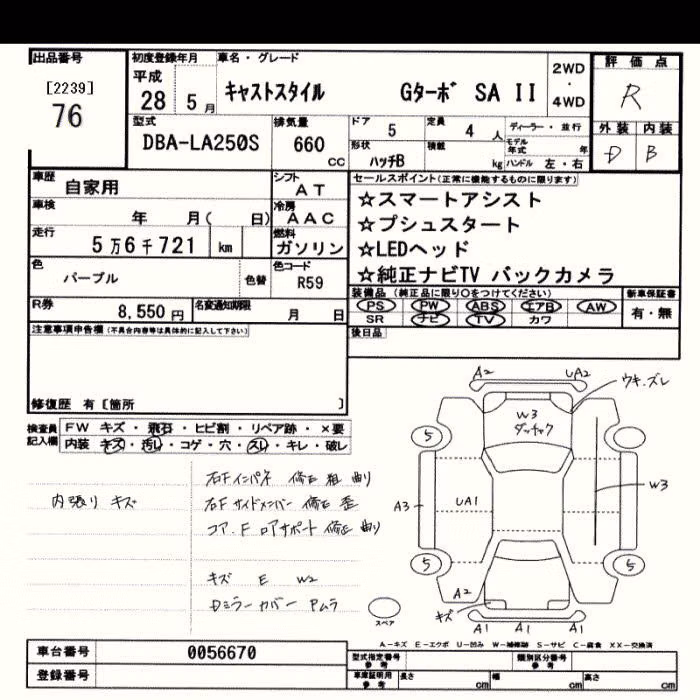 出品番号
[2239]
76
初度登録年月
平成
28 5 月
車名・グレード
キャストスタイル Gターボ SA II
2WD
・
4WD
評価点
R
外装 内装
D B
型式
DBA-LA250S
排気量
660
cc
ドア 5
定員 4 人
ディーラー・並行
形状 ハッチB
積載 kg
モデル年式 年
ハンドル 左・右
車歴 自家用
シフト AT
車検 年 月( 日)
冷房 AAC
走行 5万6千721 km
燃料 ガソリン
色 パープル 色替
色コード R59
R券 8,550 円
名変通知期限 月 日
セールスポイント(正常に機能するものに限ります)
☆スマートアシスト
☆プシュスタート
☆LEDヘッド
☆純正ナビTV バックカメラ
装備品 (純正品に限り○をつけてください)
新車保証書
PS PW ABS エアB AW
SR ナビ TV カワ
有・無
後日品
注意事項申告欄(不具合内容等は具体的に記入して下さい)
修復歴 有[箇所 ]
検査員記入欄
FW キズ・飛石・ヒビ割・リペア跡・×要
内装 キズ・汚レ・コゲ・穴・スレ・キレ・破レ
内張り キズ
右Fインパネ 修正 粗 曲り
右Fサイドメンバー 修正 歪
コア.F ロアサポート 修正 曲り
キズ E W2
Dミラーカバー アムラ
A2
UA2
ウキ.ズレ
W3
ダッチャク
5
W3
A3
UA1
5
5
A2
キズ
A1 A1 A1
スペア
A-キズ E-エクボ U-凹み W-補修跡 S-サビ C-腐食 XX-交換済
車台番号 0056670
登録番号
型式指定番号
参考
類別区分番号
参考
車庫証明用
参考
長さ cm
幅 cm
高さ cm